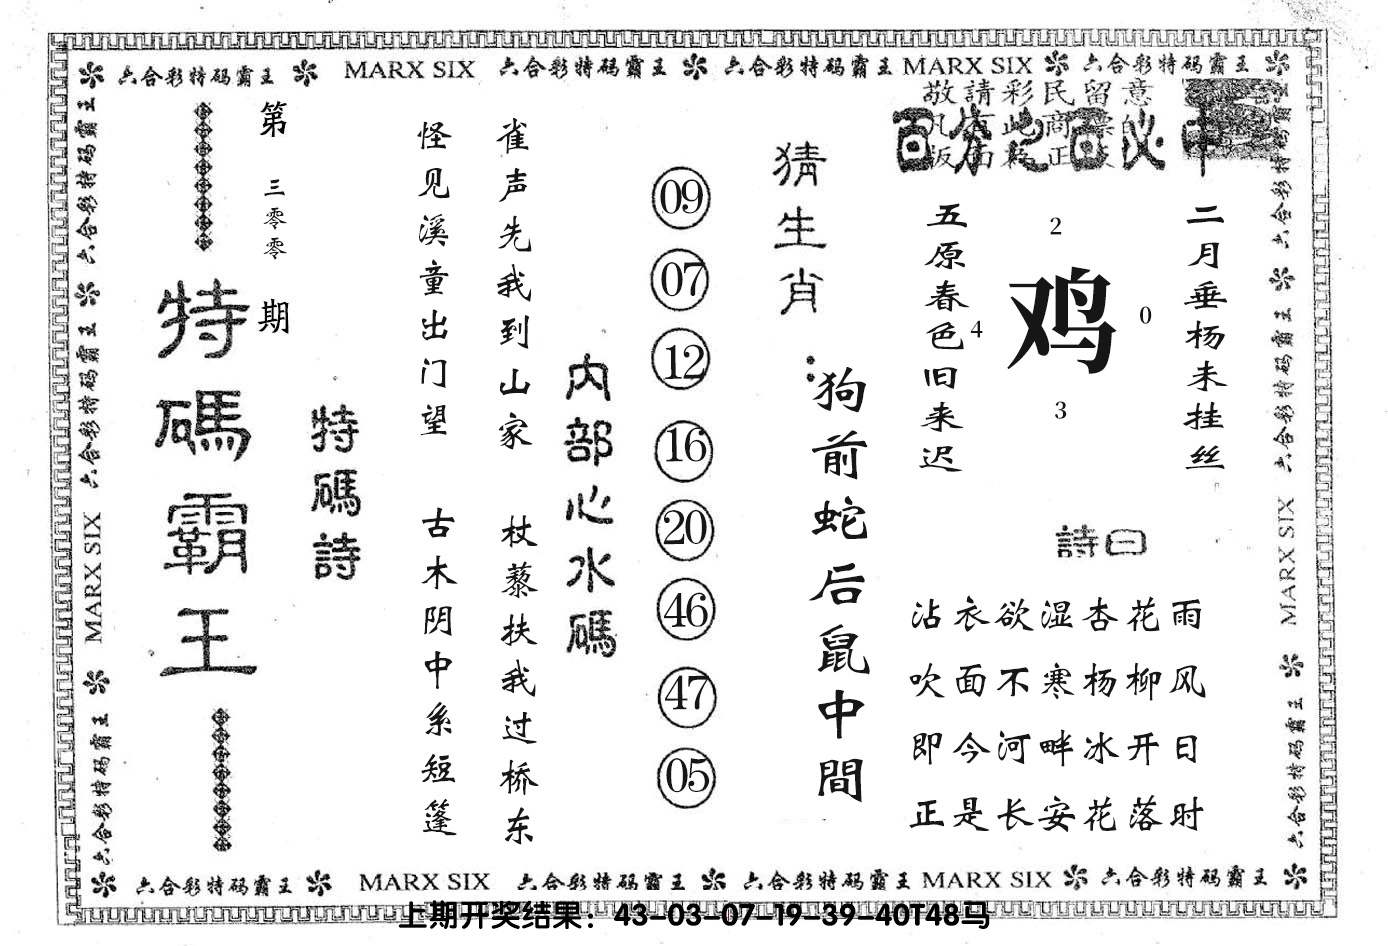 六合彩特码霸王 MARX SIX 六合彩特码霸王 六合彩特码霸王 MARX SIX 六合彩特码霸王
敬請彩民留意
百分之百必中
二月垂杨未挂丝
五原春色旧来迟
2
鸡
4
0
3
詩曰
沾衣欲湿杏花雨
吹面不寒杨柳风
即今河畔冰开日
正是长安花落时
猜生肖:
狗前蛇后鼠中間
09
07
12
16
20
46
47
05
内部心水碼
雀声先我到山家 杖藜扶我过桥东
怪见溪童出门望 古木阴中系短篷
特碼詩
第三零零期
特碼霸王
六合彩特码霸王 六合彩特码霸王 MARX SIX 六合彩特码霸王
六合彩特码霸王 六合彩特码霸王 MARX SIX 六合彩特码霸王
六合彩特码霸王 MARX SIX 六合彩特码霸王 六合彩特码霸王 MARX SIX 六合彩特码霸王
上期开奖结果：43-03-07-19-39-40T48马